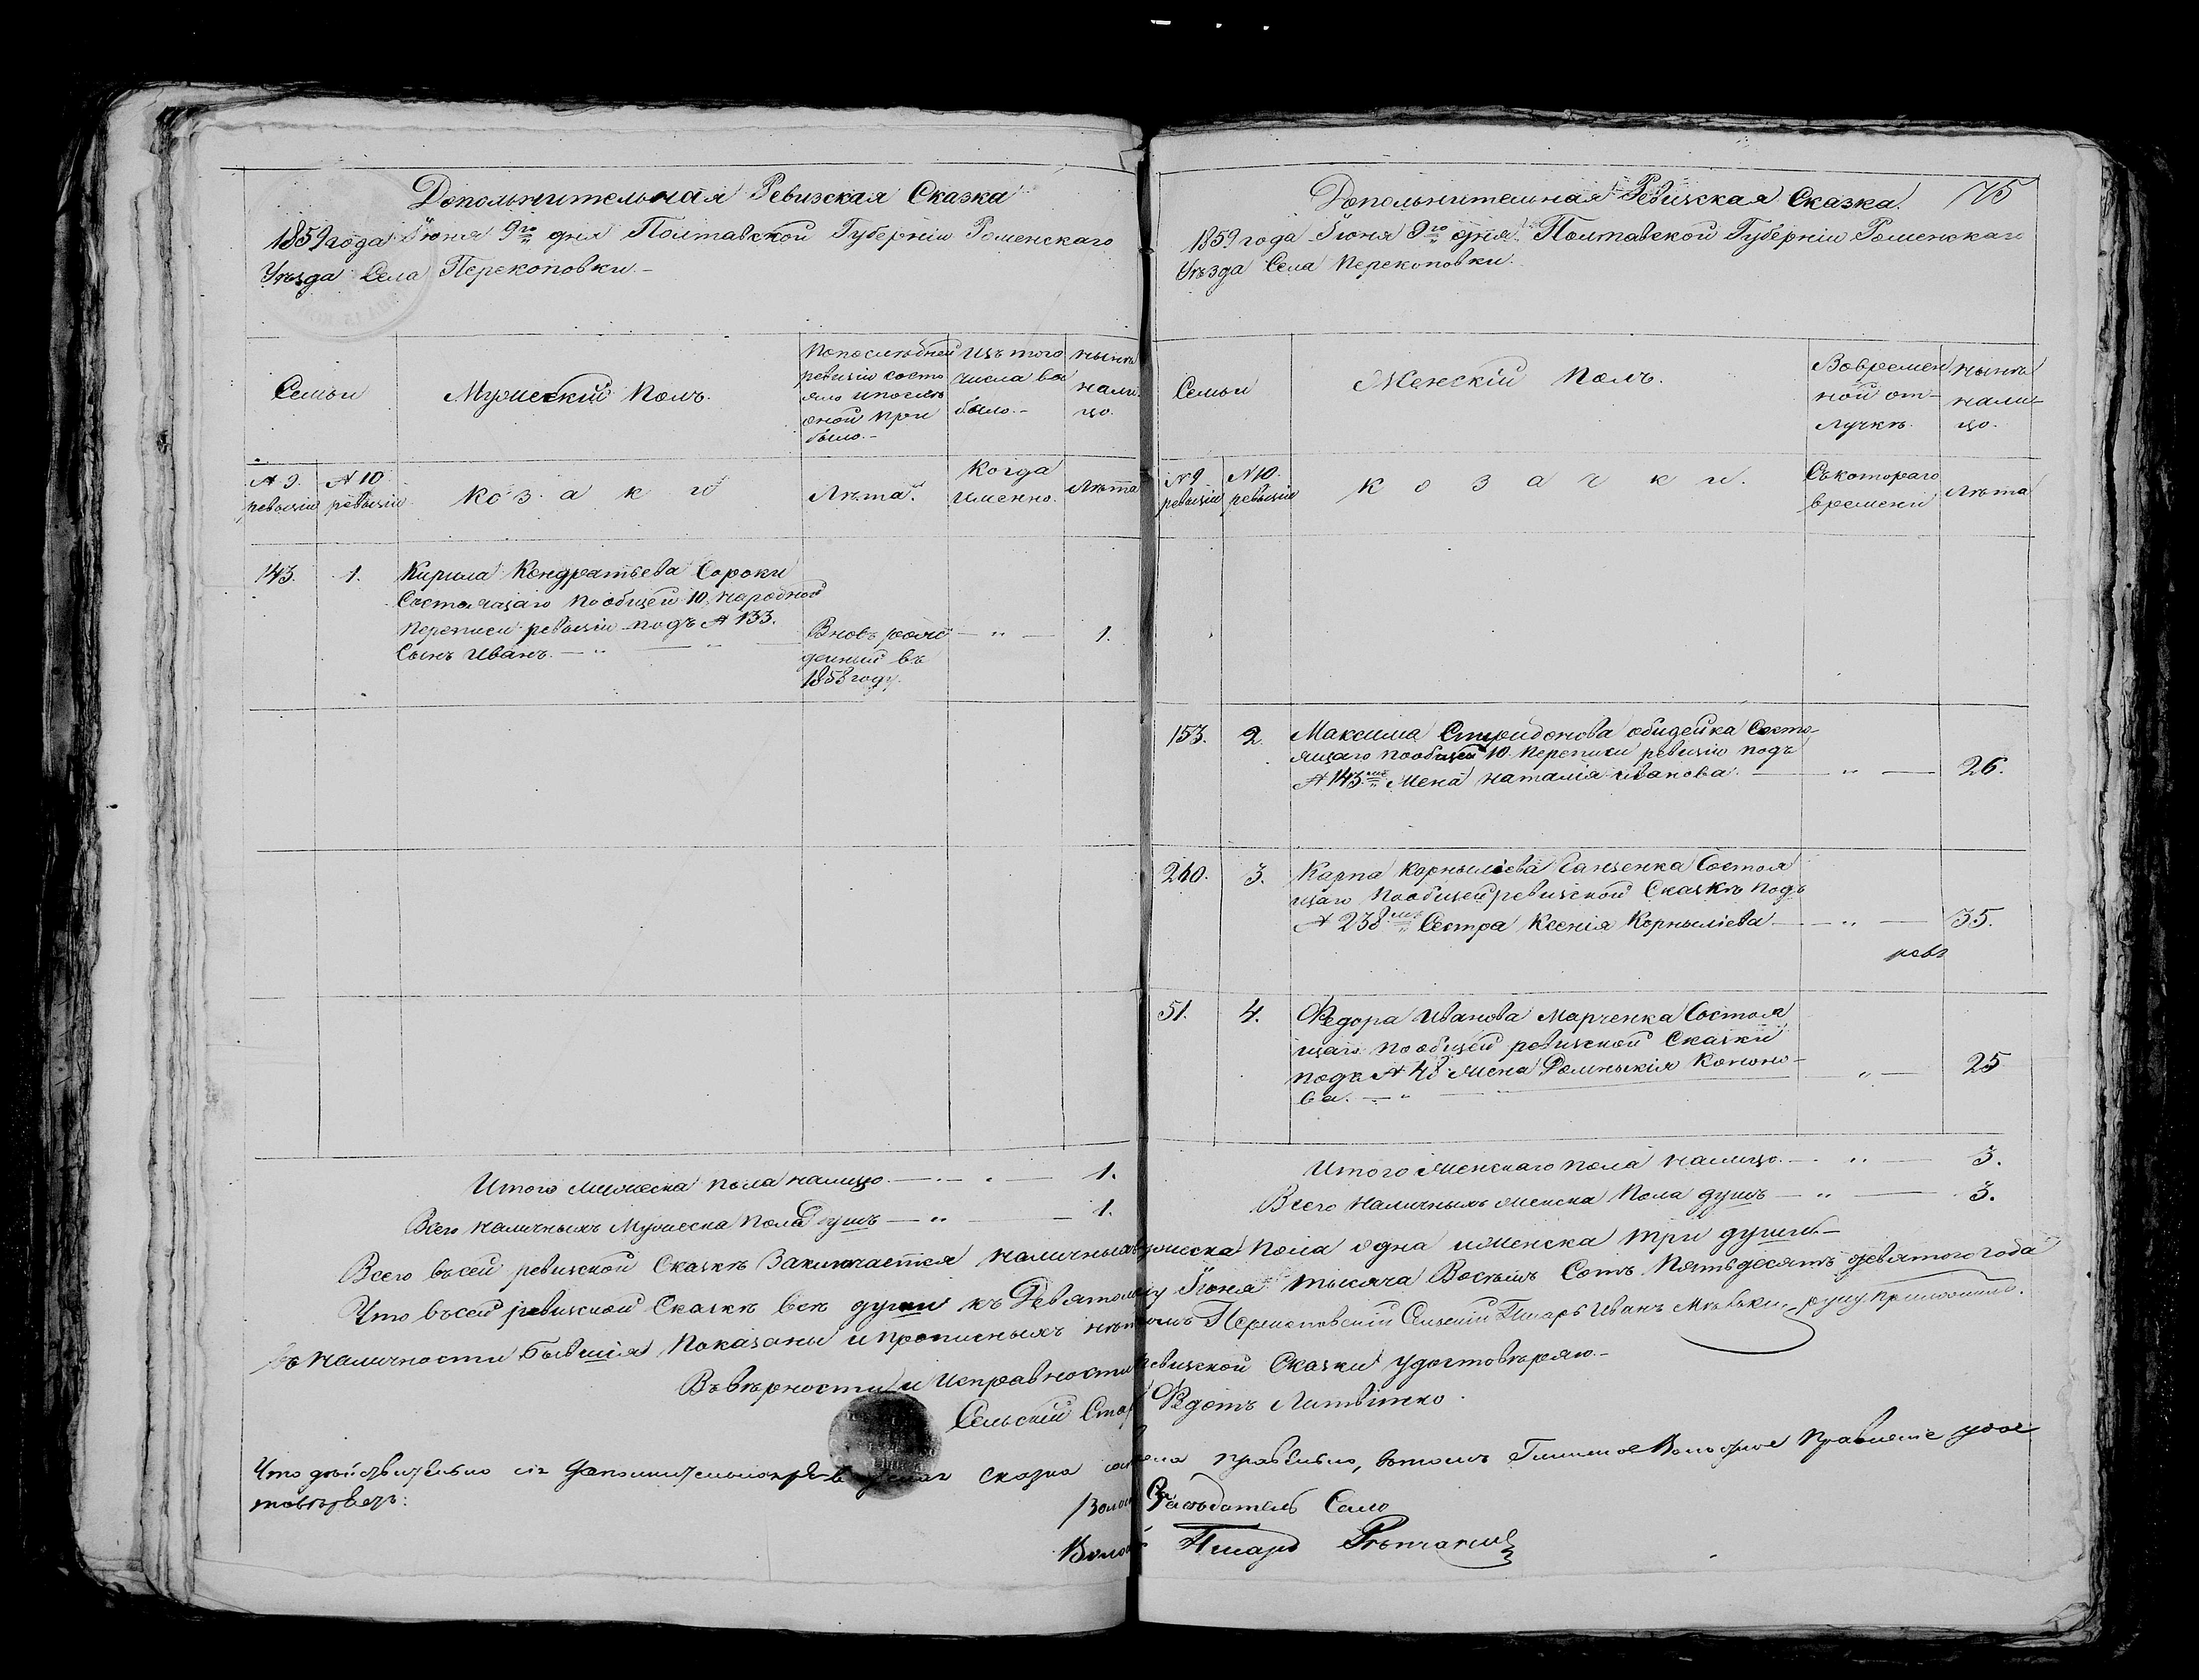 Дополнительная Ревизская Сказка
1859 года Іюня 9го дня Полтавской Губерніи Роменскаго
Уѣзда Села Перекоповки.-
Семьи
Мужескій Полъ.
Попослѣдней
ревизіи состо
яло ипослѣ
оной при
было.-
Изъ того
числа вы
было.-
Нынѣ
нали
цо.
№ 9.
ревизіи
№ 10
ревизіи
Козаки
Лѣта.
Когда
Именно.
Лѣта
143.
1.
Кирила Кондратьева Сороки
Состоящаго пообщей 10 народной
Переписи ревизіи подъ № 133.
Сынъ Иванъ. — „ — „
Вновь рож
денный въ
1858 году.
— „ —
1.
Итого Мужеска пола налицо — „ — 1.
Всего наличныхъ Мужеска Пола душъ — „ — 1.
75
Дополнительная Ревизская Сказка.
1859 года Іюня 9го дня. Полтавской Губерніи Роменскаго
Уѣзда Села Перекоповки.
Семьи
Женскій Полъ.
Вовремен
ной от-
лучкѣ.
Нынѣ
нали-
цо.
№ 9
ревизіи
№ 10.
ревизіи
Козачки.
Съкотораго
времени
Лѣта
153.
2.
Максима Спиридонова обидейка Состо-
ящаго пообщей 10 Переписи ревизіи подъ
№ 143 Жена Наталія Иванова. — „ — 26.
240.
3.
Карпа Корнылієва Состоя
щаго Пообщей ревизской Сказкѣ подъ
№ 238 Сестра Ксенія Корнылієва — „ — 35.
51.
4.
Федора Иванова Марченка Состоя
щаго пообщей ревизской Сказки
подъ № 48 Жена Домникія Кононо-
ва. — „ — 25
Итого Женскаго пола налицо — „ — 3.
Всего наличныхъ женска Пола душъ — „ — 3.
Всего въсей ревизской Сказкѣ Заключается наличныхъ мужеска пола одна иженска три души.—
Что въсей ревизской Сказкѣ всѣ души къ Девятому Іюня тысяча Восѣмъ Сотъ Пятьдесятъ девятого года
въ наличности бывшія показаны и прописныхъ нѣтъ вомъ Перекоповскій Сельскій Писарь Иванъ руку приложилъ.
Въвѣрности и Исправности ревизской Сказки удостовѣряю.-
Сельскій Стар Федотъ Литвинко.
Что дѣйствительно сія дополнительная ревизская сказка правильно, вътомъ Волостное Правленіе удос
товѣряетъ:
Волос Засѣдатель Сало
Волос Писарь